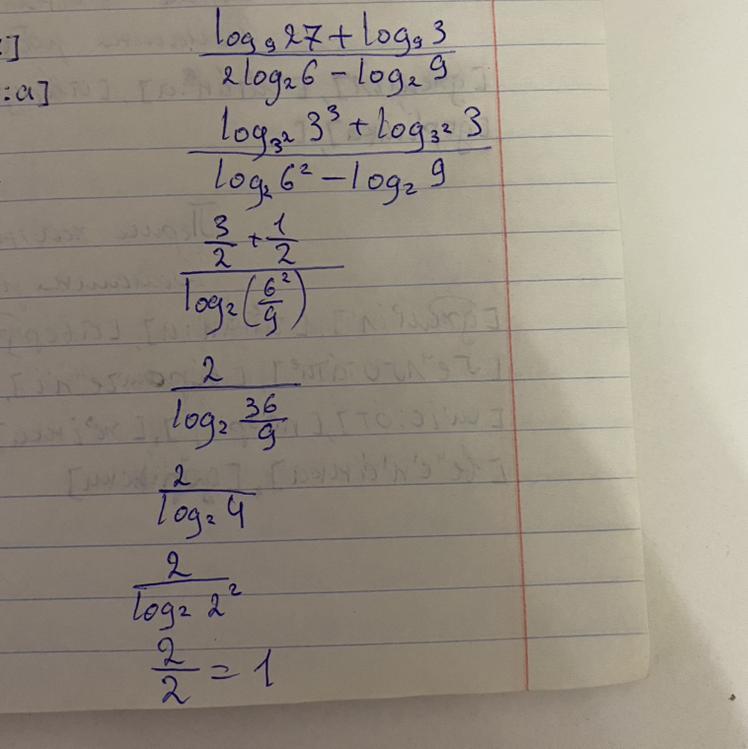 :]
:a]
log₉ 27 + log₉ 3
2log₂ 6 - log₂ 9
log₃² 3³ + log₃² 3
log₂ 6² - log₂ 9
3/2 + 1/2
log₂ (6²/9)
2
log₂ 36/9
2
log₂ 4
2
log₂ 2²
2/2 = 1